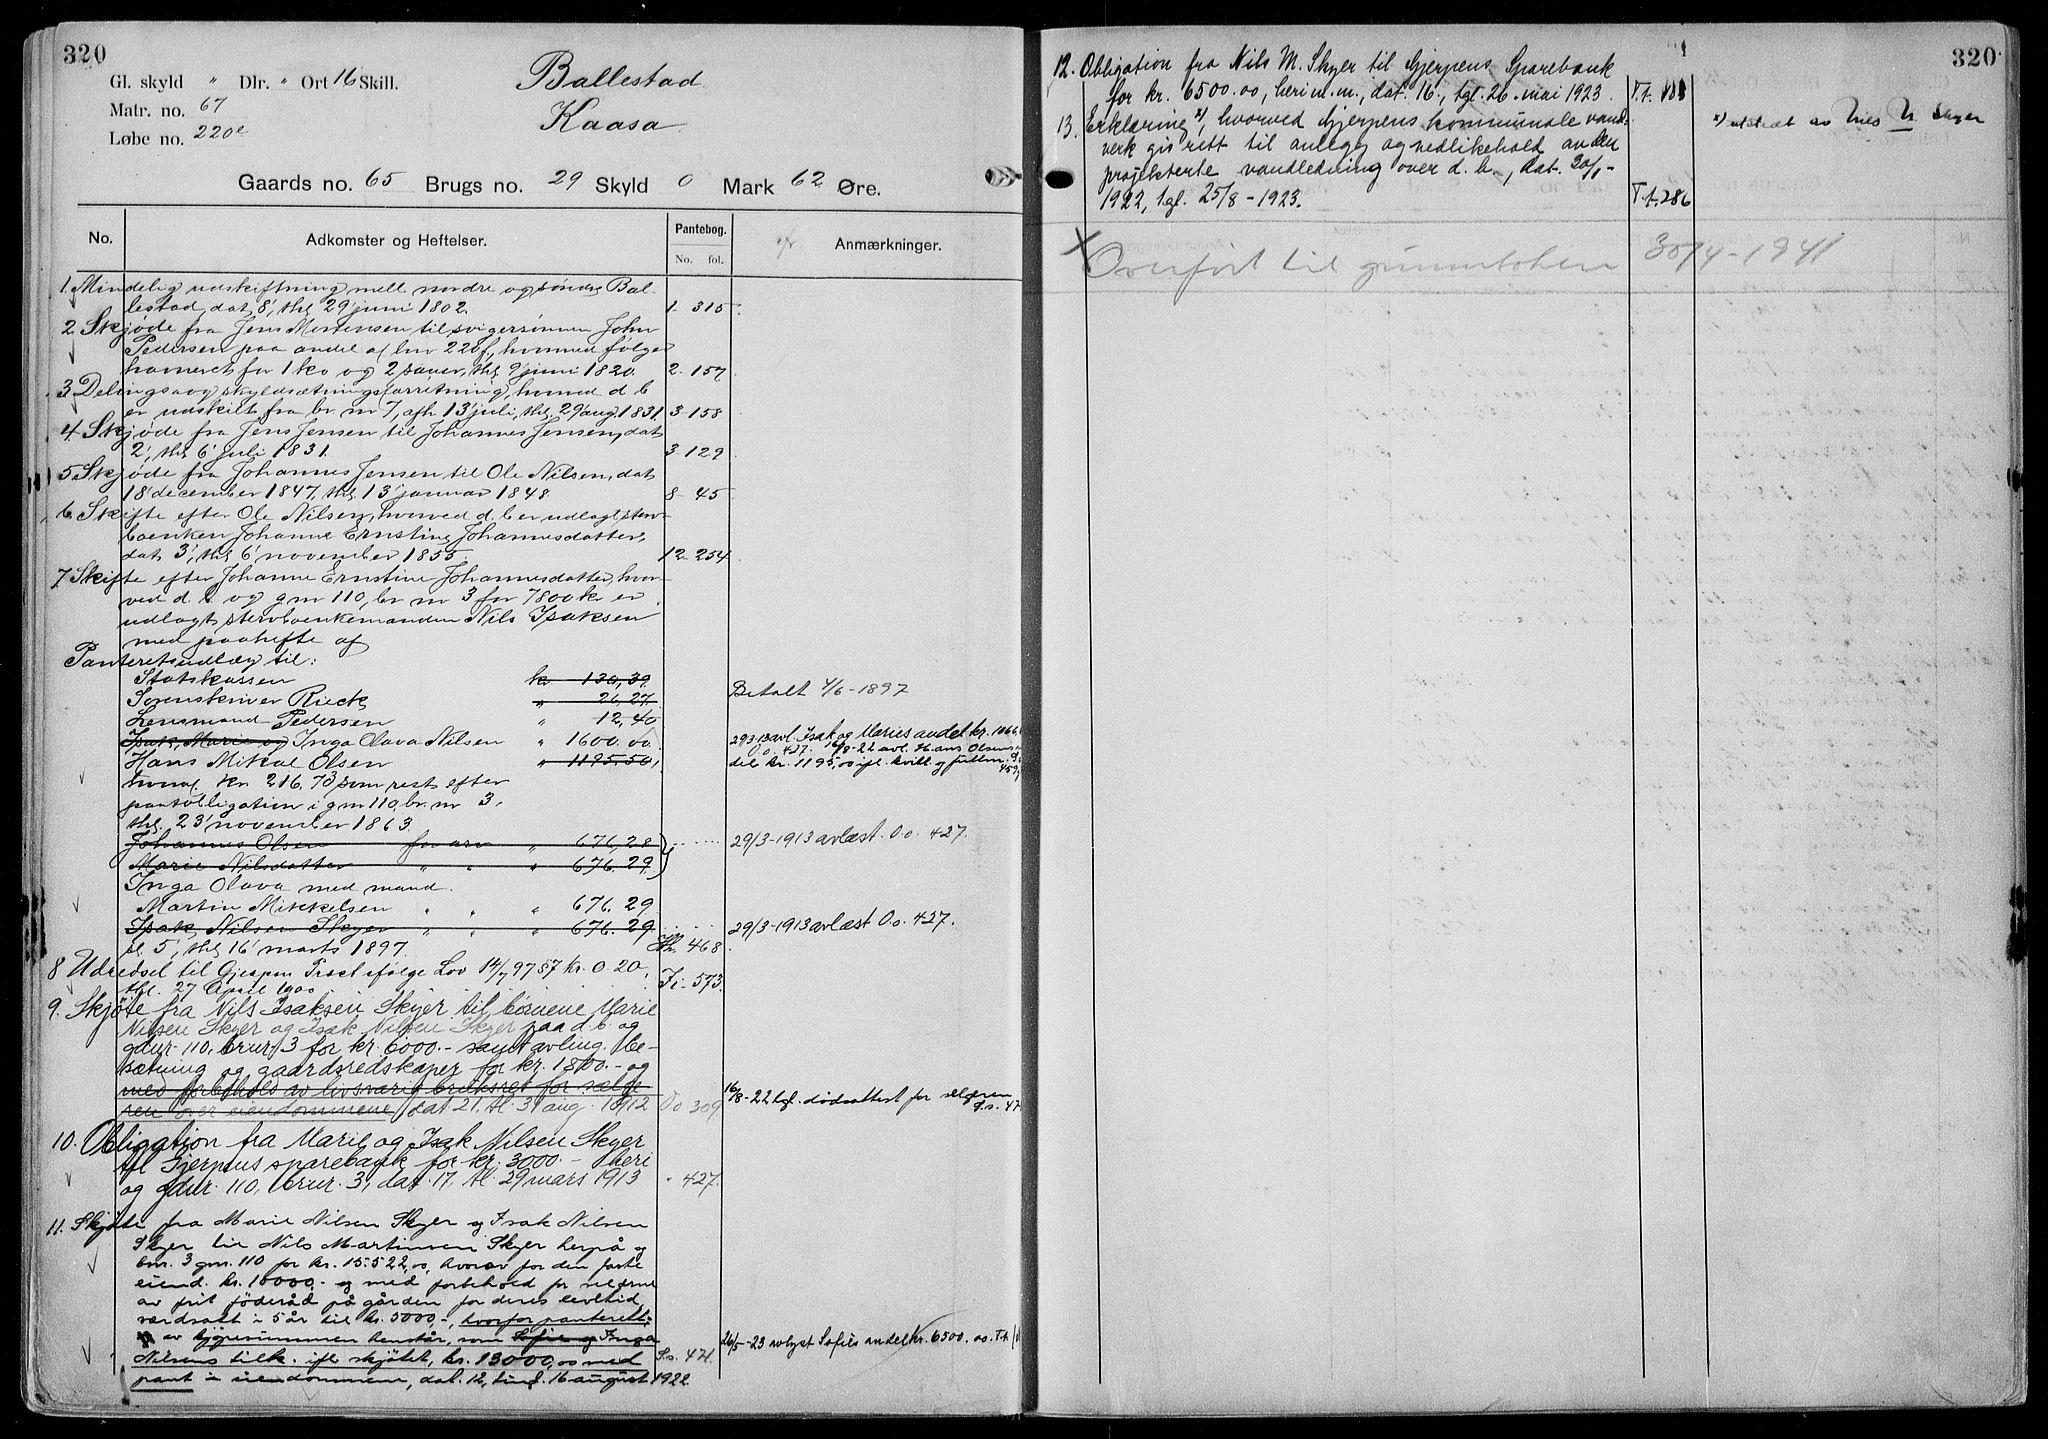 320
Gl. skyld " Dlr. " Ort 16 Skill.
Matr. no. 67
Løbe no. 220e
Ballestad
Kaasa
Gaards no. 65 Brugs no. 29 Skyld 0 Mark 62 Øre.
No. Adkomster og Heftelser. Pantebog. No. fol. Anmærkninger.
1. Mindelig udskiftning mell nordre og søndre Bal-
lestad, dat 8', thl 29' juni 1802. 1- 315
2 Skjøde fra Jens Mortensen til svigersønnen John
Pedersen paa andel af lnr 220f, hvormed følger
havneret for 1 ko og 2 sauer, thl 9' juni 1820. 2- 157
3 Delings og skyldsætningsforretning, hvorved d b
er udskilt fra br nr 7, afh 13' juli, thl. 29' aug. 1831. 3- 158
4 Skjøde fra Jens Jensen til Johannes Jensen, dat
2', thl 6' juli 1831. 3- 129
5 Skjøde fra Johannes Jensen til Ole Nilsen, dat
18' december 1847, thl 13' januar 1848. 8- 45
6. Skifte efter Ole Nilsen, hvorved d. b er udlagt sterv-
boenken Johanne Ernstine Johannesdatter,
dat 3', thl 6' november 1855. 12- 254
7 Skifte efter Johanne Ernstine Johannesdatter, hvor-
ved d. b og g nr 110, br nr 3 for 7800 kr er
udlagt stervboenkemanden Nils Isaksen
med paahefte af
Panteretsudlæg til:
Statskassen kr 130,39
Sorenskriver Rieck " 26,27. Betalt 4/6-1897
Lensmand Pedersen " 12,40
Isak, Marie og Inga Olava Nilsen " 1600.00. 29 3-13 avl. Isak og Maries andel kr. 1066
Oo. 427. 16/8-22 avl. Hans Olsens
Hans Mikal Olsen " 1195.50, del kr. 1195,00 ifl. kvitt. g fullm.
hvoraf kr 216.73 som rest efter
pantobligation i g nr 110, br. nr 3,
thl. 23' november 1863.
Johannes Olsen for arv " 676,28 29/3-1913 avlæst. Oo. 427.
Marie Nilsdatter " " " 676.29
Inga Olava med mand
Martin Mikkelsen " " " 676.29
Isak Nilsen Skyer " " " 676.29 29/3-1913 avlæst Oo. 427.
sl 5', thl 16' marts 1897. 468
8 Udredsel til Gjerpen Præst ifølge Lov 14/7 97 §7 kr. 0.20,
thl. 27 April 1900 573.
9. Skjøte fra Nils Isaksen Skyer til børnene Marie
Nilsen Skyer og Isak Nilsen Skyer paa d. b. og
gdnr. 110, brnr. 3 for kr. 6000.- samt avling, be-
sætning og gaardsredskaper for kr. 1800.- og
med forbehold av livsvarig bruksret for sælge-
ren over eiendommene, dat 21, tl. 31 aug. 1912 Oo 309 16/8-22 tgl. dødsattest for selgeren
10. Obligation fra Marie og Isak Nilsen Skyer
til Gjerpens sparebank for kr. 3000.- heri
og gdnr. 110, brnr. 3, dat. 17, tl. 29 mars 1913 " 427.
11. Skjøte fra Marie Nilsen Skyer og Isak Nilsen
Skyer til Nils Martinsen Skyer herpå g
bnr. 3 gnr. 110 for kr. 15522,00, hvorav for den faste
eiend. kr. 10000,- g med forbehold for selgerne
av frit föderåd på gården for deres levetid,
værdsatt i 5 år til kr. 5000,-, hvorfor panterett,
av kjøpesummen henstår, som Sofie g Inga 26/5-23 avlyst Sofies andel kr. 6500.00. T.t.
Nilsens tilk. ifl. skjötet, kr. 13000,00 med S.s. 471.
pant i eiendommene, dat. 12, tingl. 16 august 1922.
320
12. Obligation fra Nils M. Skyer til Gjerpens Sparebank
for kr. 6500.00, heri m.m., dat. 16., tgl. 26. mai 1923. T.t.
13. Erklæring x), hvorved Gjerpens kommunale vand- x) utstedt av Nils M Skyer
verk gis rett til anlegg og vedlikehold av den
projekterte vandledning over d. b., dat. 30/1-
1922, tgl. 25/8-1923. T.t. 286
Overført til grunnboken 30/4-1941